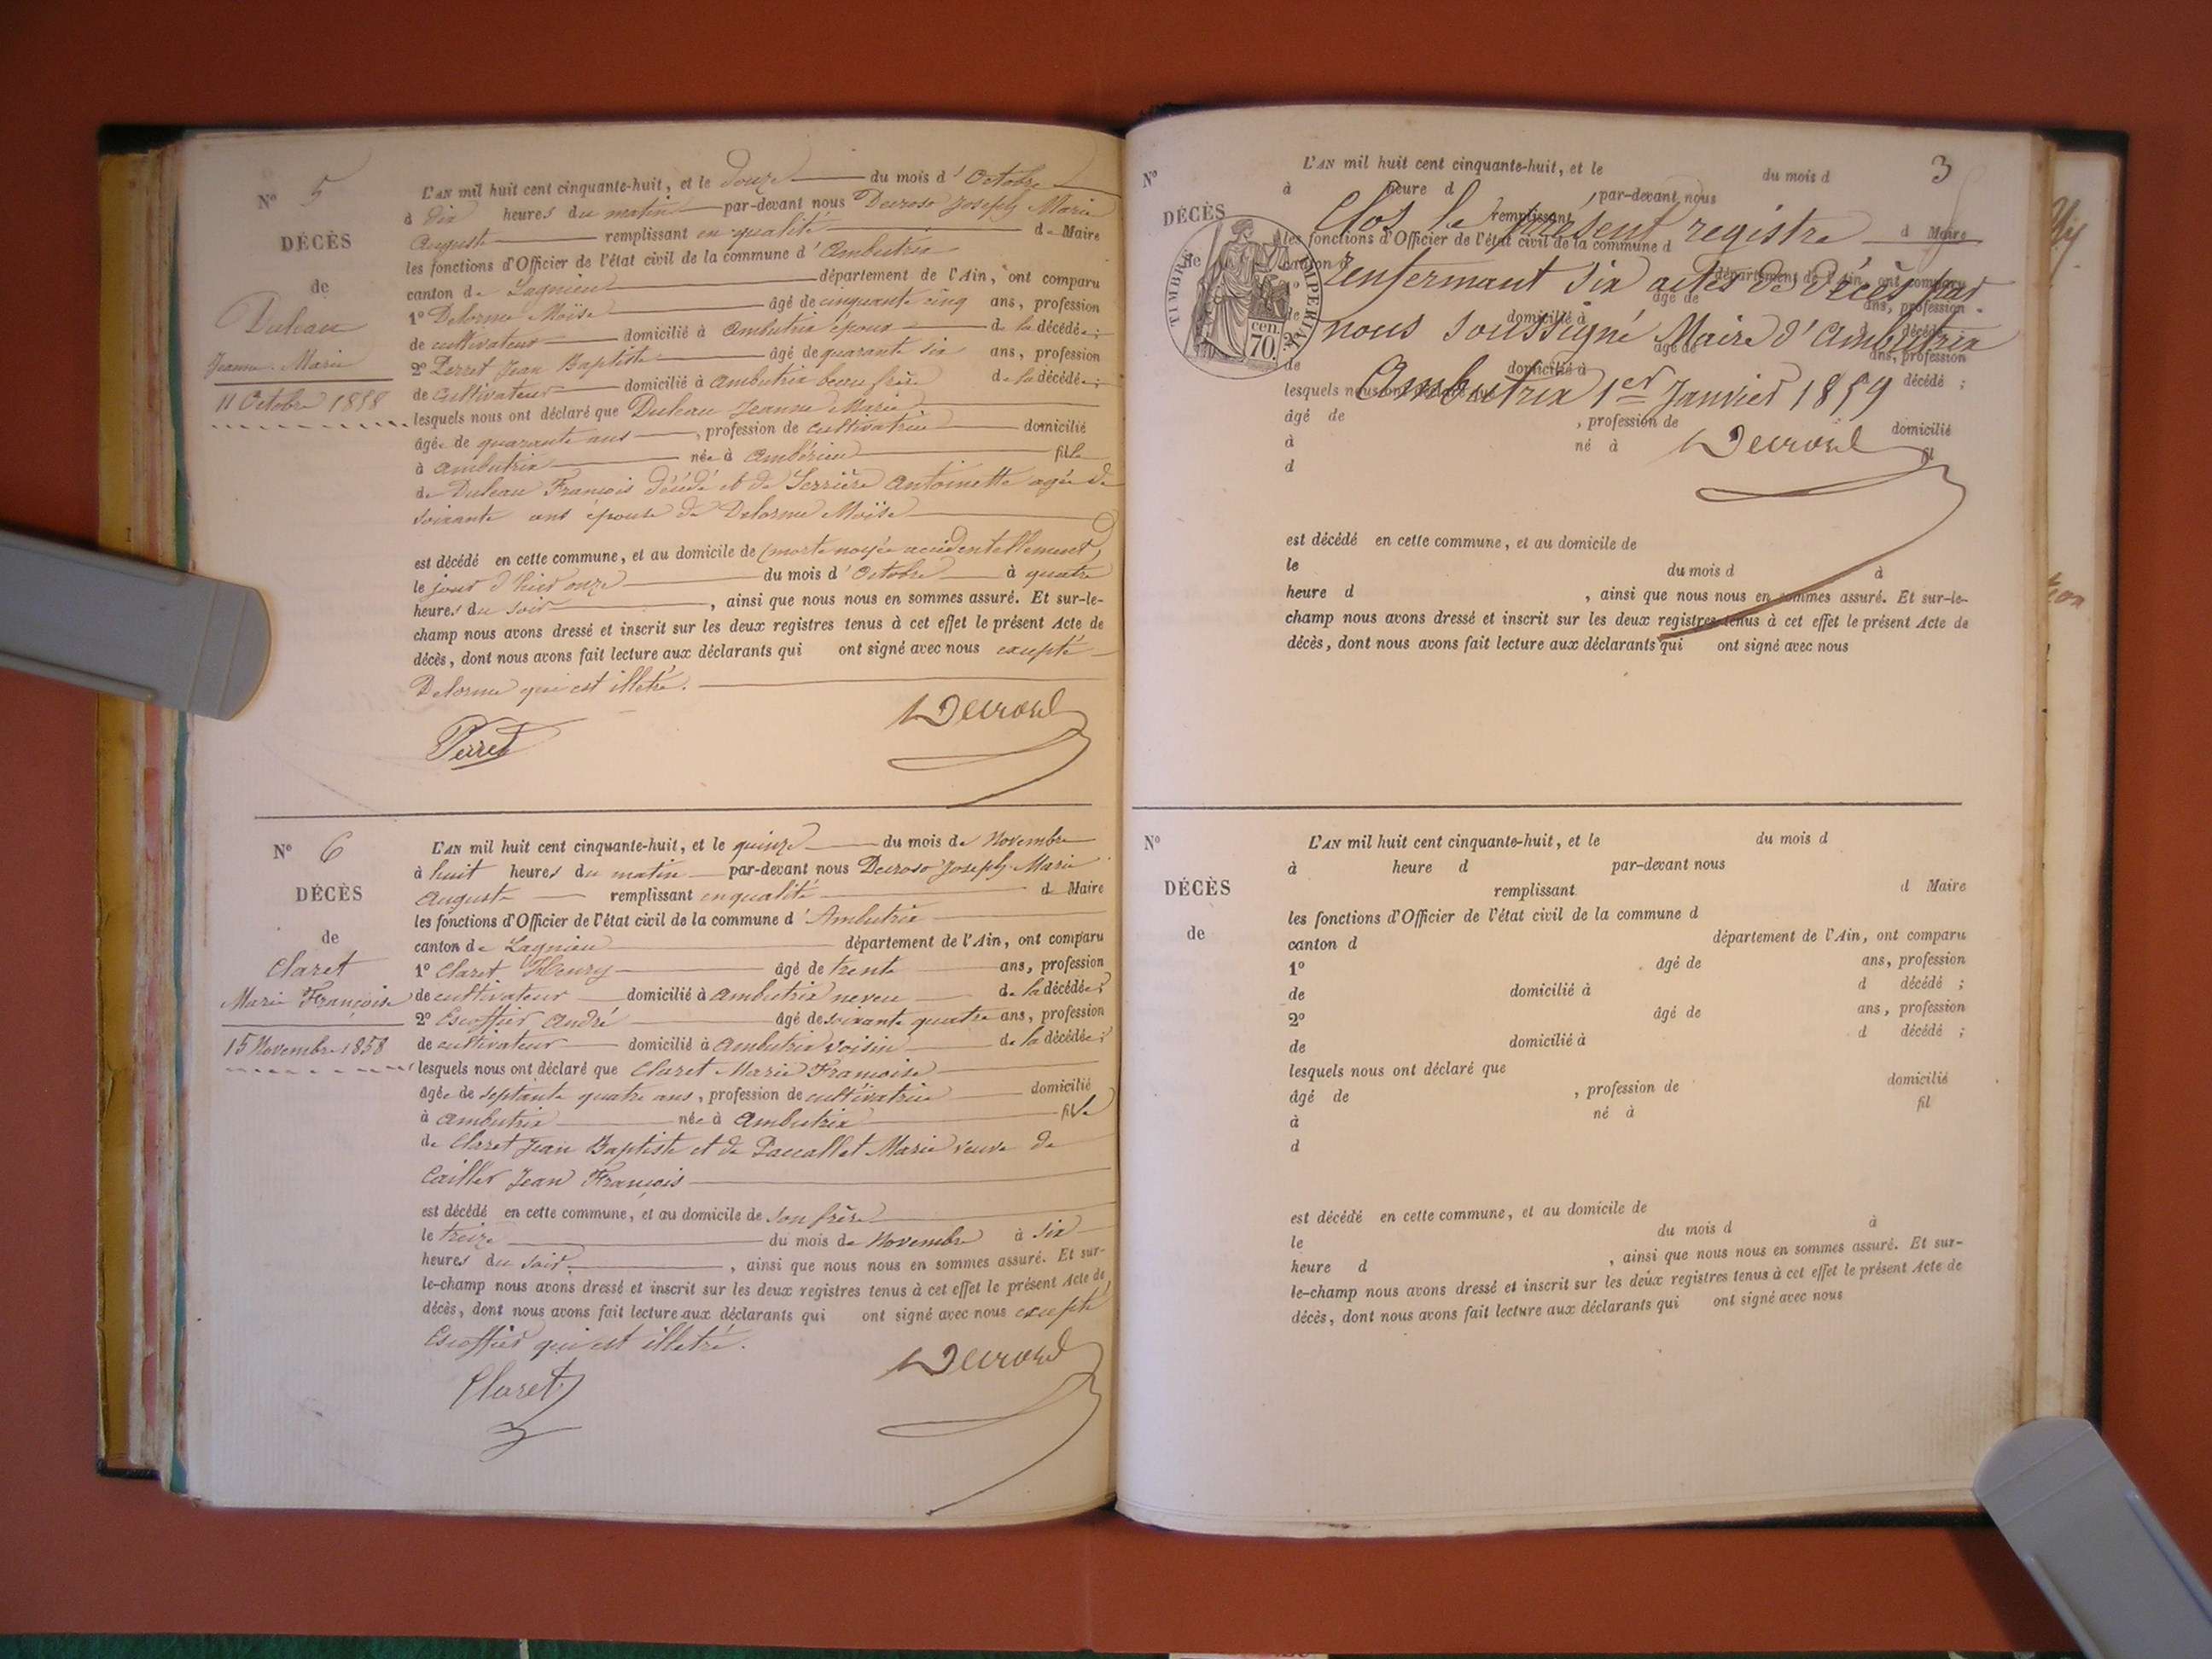 N° 5
DÉCÈS
de
Duleau
Jeanne Marie
11 Octobre 1858
L'AN mil huit cent cinquante-huit, et le douze du mois d'Octobre
à dix heures du matin par-devant nous Decroso Joseph Marie
Auguste remplissant en qualité de Maire
les fonctions d'Officier de l'état civil de la commune d'Ambutrix
canton de Lagnieu département de l'Ain, ont comparu
1° Delorme Moïse âgé de cinquante cinq ans, profession
de cultivateur domicilié à Ambutrix époux de la décédée;
2° Perret Jean Baptiste âgé de quarante six ans, profession
de Cultivateur domicilié à Ambutrix beau frère de la décédée;
lesquels nous ont déclaré que Duleau Jeanne Marie
âgée de quarante ans, profession de cultivatrice domicilié
à Ambutrix née à Ambérieu fille
de Duleau François décédé et de Serrière Antoinette agée de
soixante ans épouse de Delorme Moïse
est décédé en cette commune, et au domicile de (morte noyée accidentellement)
le jour d'hier onze du mois d'Octobre à quatre
heures du soir, ainsi que nous nous en sommes assuré. Et sur-le-
champ nous avons dressé et inscrit sur les deux registres tenus à cet effet le présent Acte de
décès, dont nous avons fait lecture aux déclarants qui ont signé avec nous excepté
Delorme qui est illetré.
Perret Decroso
N° 6
DÉCÈS
de
Claret
Marie Françoise
15 Novembre 1858
L'AN mil huit cent cinquante-huit, et le quinze du mois de Novembre
à huit heures du matin par-devant nous Decroso Joseph Marie
Auguste remplissant en qualité de Maire
les fonctions d'Officier de l'état civil de la commune d'Ambutrix
canton de Lagnieu département de l'Ain, ont comparu
1° Claret Fleury âgé de trente ans, profession
de cultivateur domicilié à Ambutrix neveu de la décédée;
2° Escoffier André âgé de soixante quatre ans, profession
de cultivateur domicilié à Ambutrix voisin de la décédée;
lesquels nous ont déclaré que Claret Marie Françoise
âgée de septante quatre ans, profession de cultivatrice domicilié
à Ambutrix née à Ambutrix fille
de Claret Jean Baptiste et de Paccallet Marie veuve de
Cailler Jean François
est décédé en cette commune, et au domicile de son frère
le treize du mois de Novembre à six
heures du soir, ainsi que nous nous en sommes assuré. Et sur-
le-champ nous avons dressé et inscrit sur les deux registres tenus à cet effet le présent Acte de
décès, dont nous avons fait lecture aux déclarants qui ont signé avec nous excepté
Escoffier qui est illetré.
Claret Decroso
3
N°
DÉCÈS
de
TIMBRE IMPÉRIAL
70 cen.
L'AN mil huit cent cinquante-huit, et le du mois d
à heure d par-devant nous
remplissant d Maire
Clos le présent registre
les fonctions d'Officier de l'état civil de la commune d
canton d département de l'Ain, ont comparu
renfermant six actes de décès par
1° âgé de ans, profession
de domicilié à d décédé
nous soussigné Maire d'Ambutrix
âgé de ans, profession
de domicilié à d décédé ;
lesquels nous ont déclaré que
Ambutrix 1er Janvier 1859
âgé de , profession de domicilié
à né à fil
d
Decroso
est décédé en cette commune, et au domicile de
le du mois d à
heure d , ainsi que nous nous en sommes assuré. Et sur-le-
champ nous avons dressé et inscrit sur les deux registres tenus à cet effet le présent Acte de
décès, dont nous avons fait lecture aux déclarants qui ont signé avec nous
N°
DÉCÈS
de
L'AN mil huit cent cinquante-huit, et le du mois d
à heure d par-devant nous
remplissant d Maire
les fonctions d'Officier de l'état civil de la commune d
canton d département de l'Ain, ont comparu
1° âgé de ans, profession
de domicilié à d décédé ;
2° âgé de ans, profession
de domicilié à d décédé ;
lesquels nous ont déclaré que
âgé de , profession de domicilié
à né à fil
d
est décédé en cette commune, et au domicile de
le du mois d à
heure d , ainsi que nous nous en sommes assuré. Et sur-
le-champ nous avons dressé et inscrit sur les deux registres tenus à cet effet le présent Acte de
décès, dont nous avons fait lecture aux déclarants qui ont signé avec nous